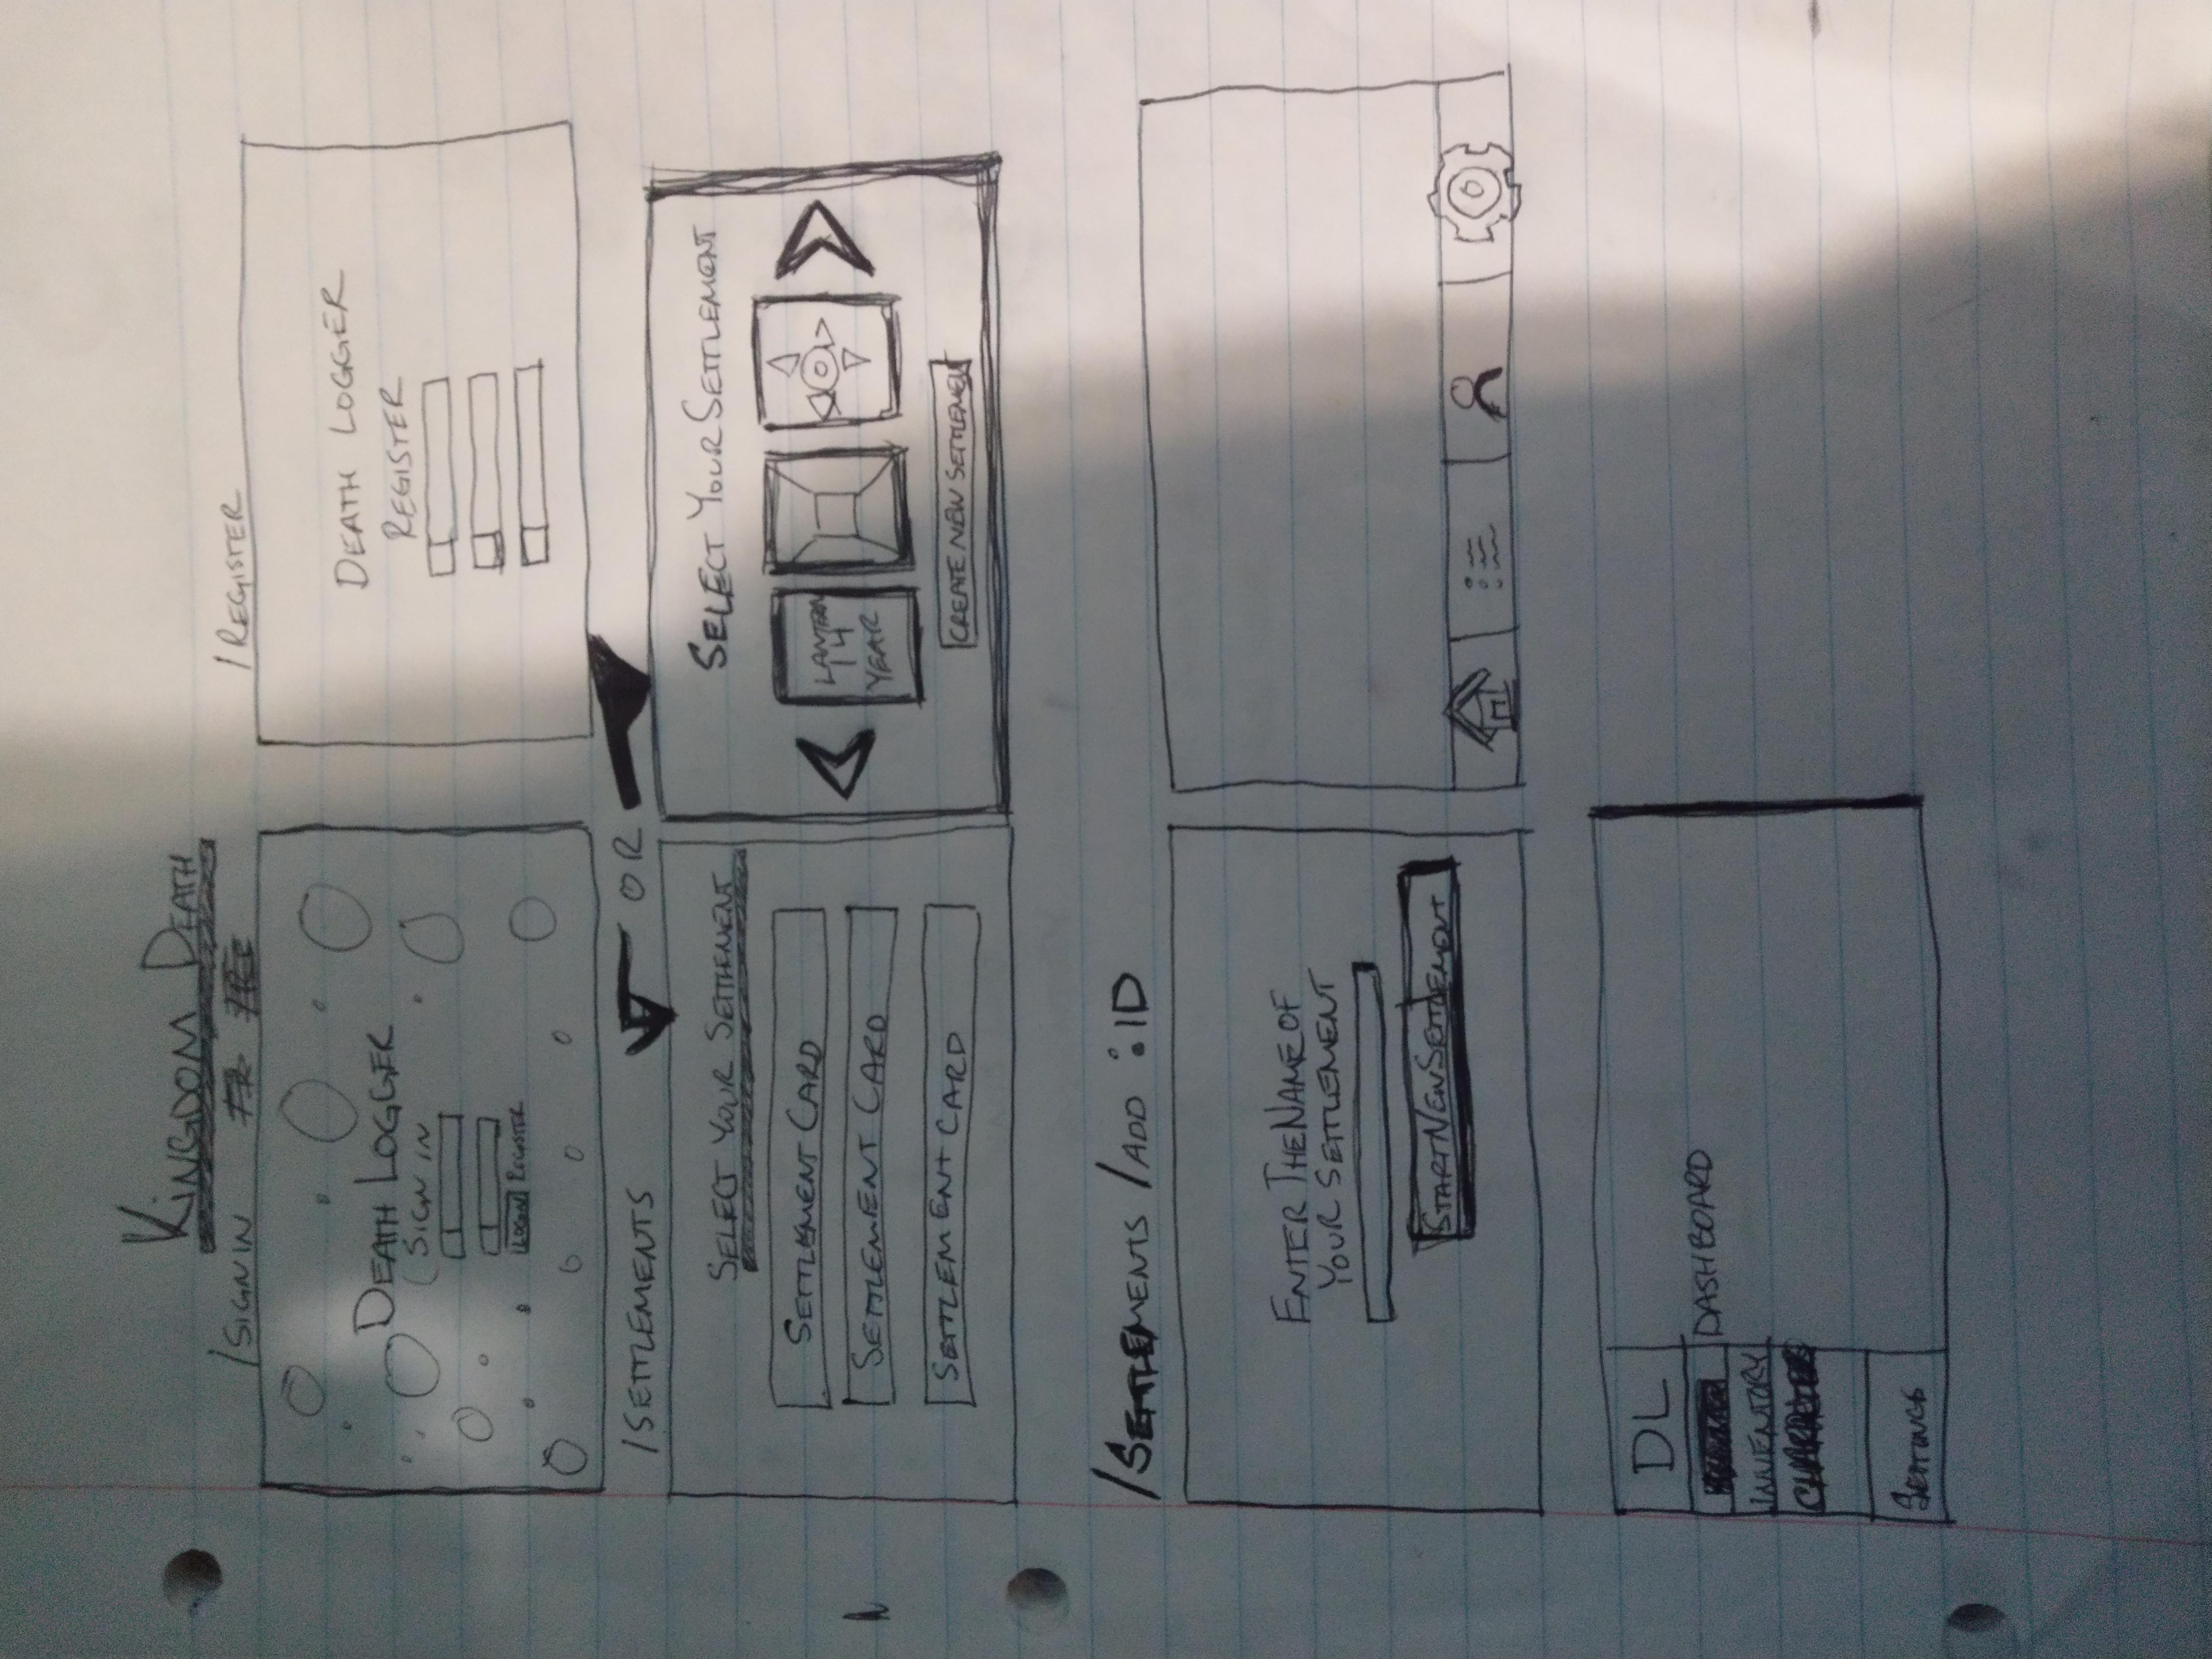 KINGDOM DEATH
/SIGN IN
/REGISTER
DEATH LOGGER
SIGN IN
LOGIN REGISTER
DEATH LOGGER
REGISTER
/SETTLEMENTS
OR
SELECT YOUR SETTLEMENT
SETTLEMENT CARD
SETTLEMENT CARD
SETTLEMENT CARD
SELECT YOUR SETTLEMENT
LANTERN
14
YEAR
CREATE NEW SETTLEMENT
/SETTLEMENTS /ADD :ID
ENTER THE NAME OF
YOUR SETTLEMENT
START NEW SETTLEMENT
DL
DASHBOARD
INVENTORY
SETTINGS